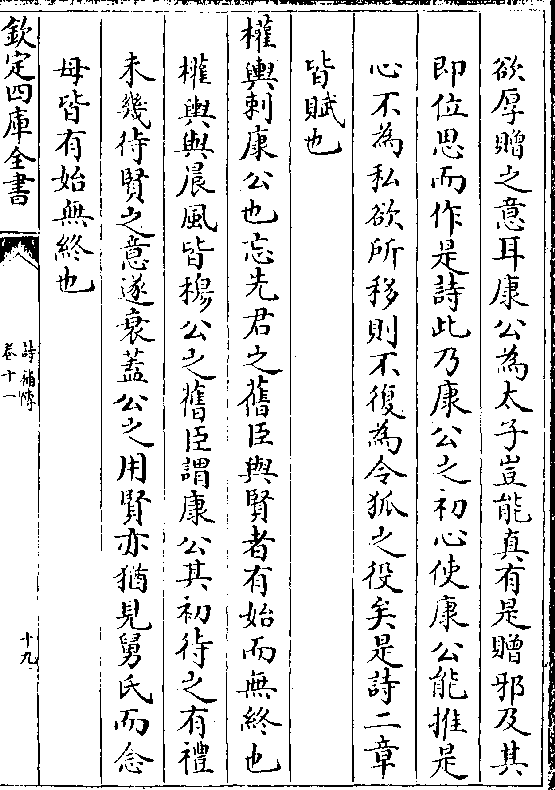 欲厚贈之意耳康公為太子豈能真有是贈邪及其
即位思而作是詩此乃康公之初心使康公能推是
心不為私欲所移則不復為令狐之役矣是詩二章
皆賦也
權輿刺康公也忘先君之舊臣與賢者有始而無終也
權輿與晨風皆穆公之舊臣謂康公其初待之有禮
未幾待賢之意遂衰蓋公之用賢亦猶見舅氏而念
母皆有始無終也
欽定四庫全書
詩補傳
卷十一
十九